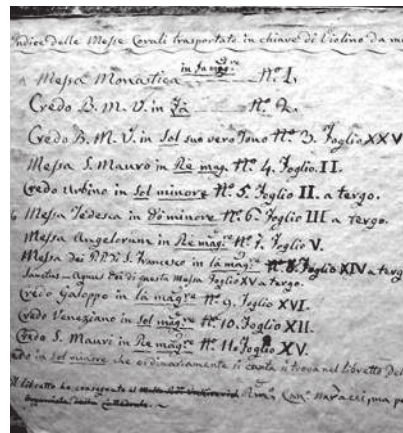 Indice delle Messe Corali trasportate in chiave di Violino da
Messa Monastica in fa mag.re N.º 1.
Credo B. M. V. in Fà N.º 2.
Credo B. M. V. in Sol suo vero Tono N.º 3. Foglio XXV
Messa S. Mauro in Re mag. N.º 4. Foglio II.
Credo Urbino in Sol minore N.º 5. Foglio II. a tergo.
Messa Tedesca in Dò minore N.º 6. Foglio III a tergo.
Messa Angelorum in Re mag.re N.º 7. Foglio V.
Messa Dei P.P. di S. Francesco in la mag.re N.º 8. Foglio XIV a tergo
Sanctus Agnus Dei di questa Messa Foglio XV a tergo.
Credo Galoppo in là mag.re N.º 9. Foglio XVI.
Credo Veneziano in Sol mag.re N.º 10. Foglio XII.
Credo S. Mauri in Re mag.re N.º 11. Foglio XV.
in sol minore che ordinariamente si canta si trova nel libretto Del
Il libretto ho consegnato al Rmo. Can.co ma